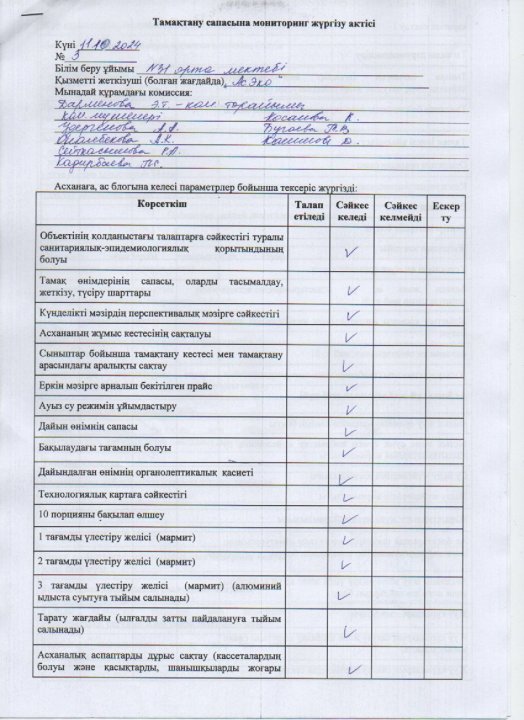 Тамақтану сапасына мониторинг жүргізу актісі
Күні 11.10 2024
№ 3
Білім беру ұйымы №31 орта мектебі
Қызметті жеткізуші (болған жағдайда) "АСЭко"
Мынадай құрамдағы комиссия:
Э.Т. – ком төрайымы
ком мүшелері Косанова К.
А.А. Бугаева
В.К. Д.
Сейткасымова Г.А.
Кадирбаева
Асханаға, ас блогына келесі параметрлер бойынша тексеріс жүргізді:
Көрсеткіш Талап етіледі Сәйкес келеді Сәйкес келмейді Ескер ту
Объектінің қолданыстағы талаптарға сәйкестігі туралы
санитариялық-эпидемиологиялық қорытындының
болуы
Тамақ өнімдерінің сапасы, оларды тасымалдау,
жеткізу, түсіру шарттары
Күнделікті мәзірдің перспективалық мәзірге сәйкестігі
Асхананың жұмыс кестесінің сақталуы
Сыныптар бойынша тамақтану кестесі мен тамақтану
арасындағы аралықты сақтау
Еркін мәзірге арналып бекітілген прайс
Ауыз су режимін ұйымдастыру
Дайын өнімнің сапасы
Бақылаудағы тағамның болуы
Дайындалған өнімнің органолептикалық қасиеті
Технологиялық картаға сәйкестігі
10 порцияны бақылап өлшеу
1 тағамды үлестіру желісі (мармит)
2 тағамды үлестіру желісі (мармит)
3 тағамды үлестіру желісі (мармит) (алюминий
ыдыста суытуға тыйым салынады)
Тарату жағдайы (ылғалды затты пайдалануға тыйым
салынады)
Асханалық аспаптарды дұрыс сақтау (кассеталардың
болуы және қасықтарды, шанышқыларды жоғары